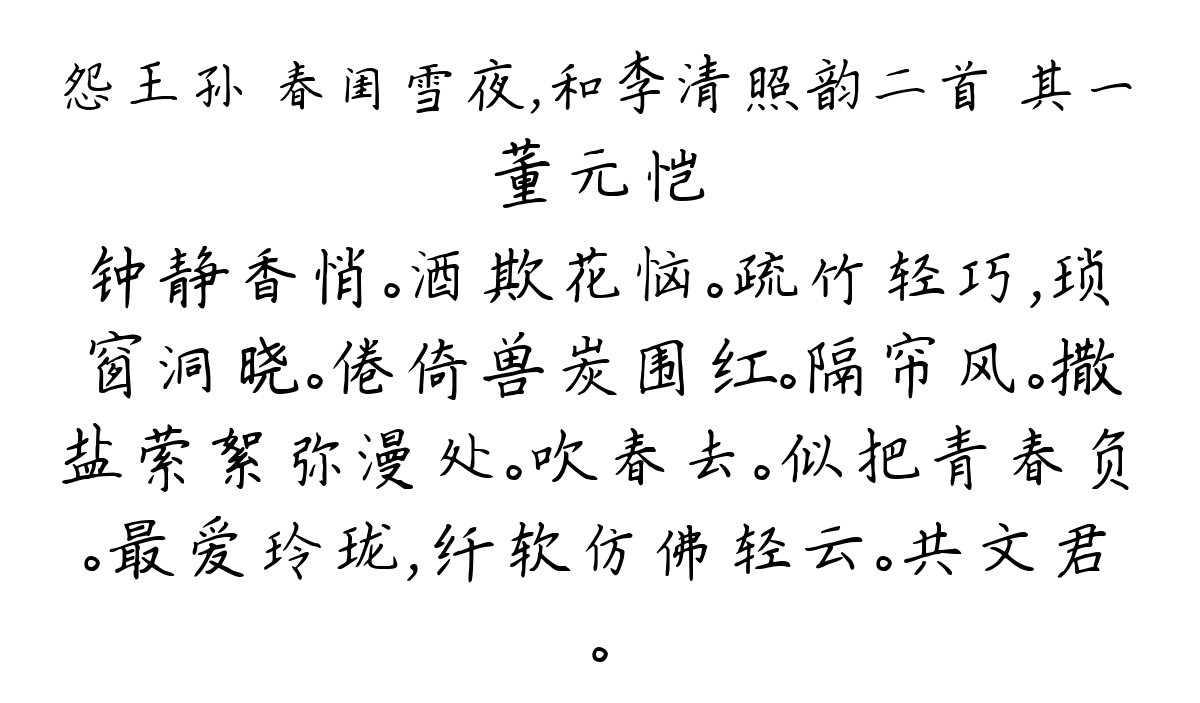 怨王孙 春闺雪夜,和李清照韵二首 其一
董元恺
钟静香悄。酒欺花恼。疏竹轻巧,琐
窗洞晓。倦倚兽炭围红。隔帘风。撒
盐萦絮弥漫处。吹春去。似把青春负
。最爱玲珑,纤软仿佛轻云。共文君
。